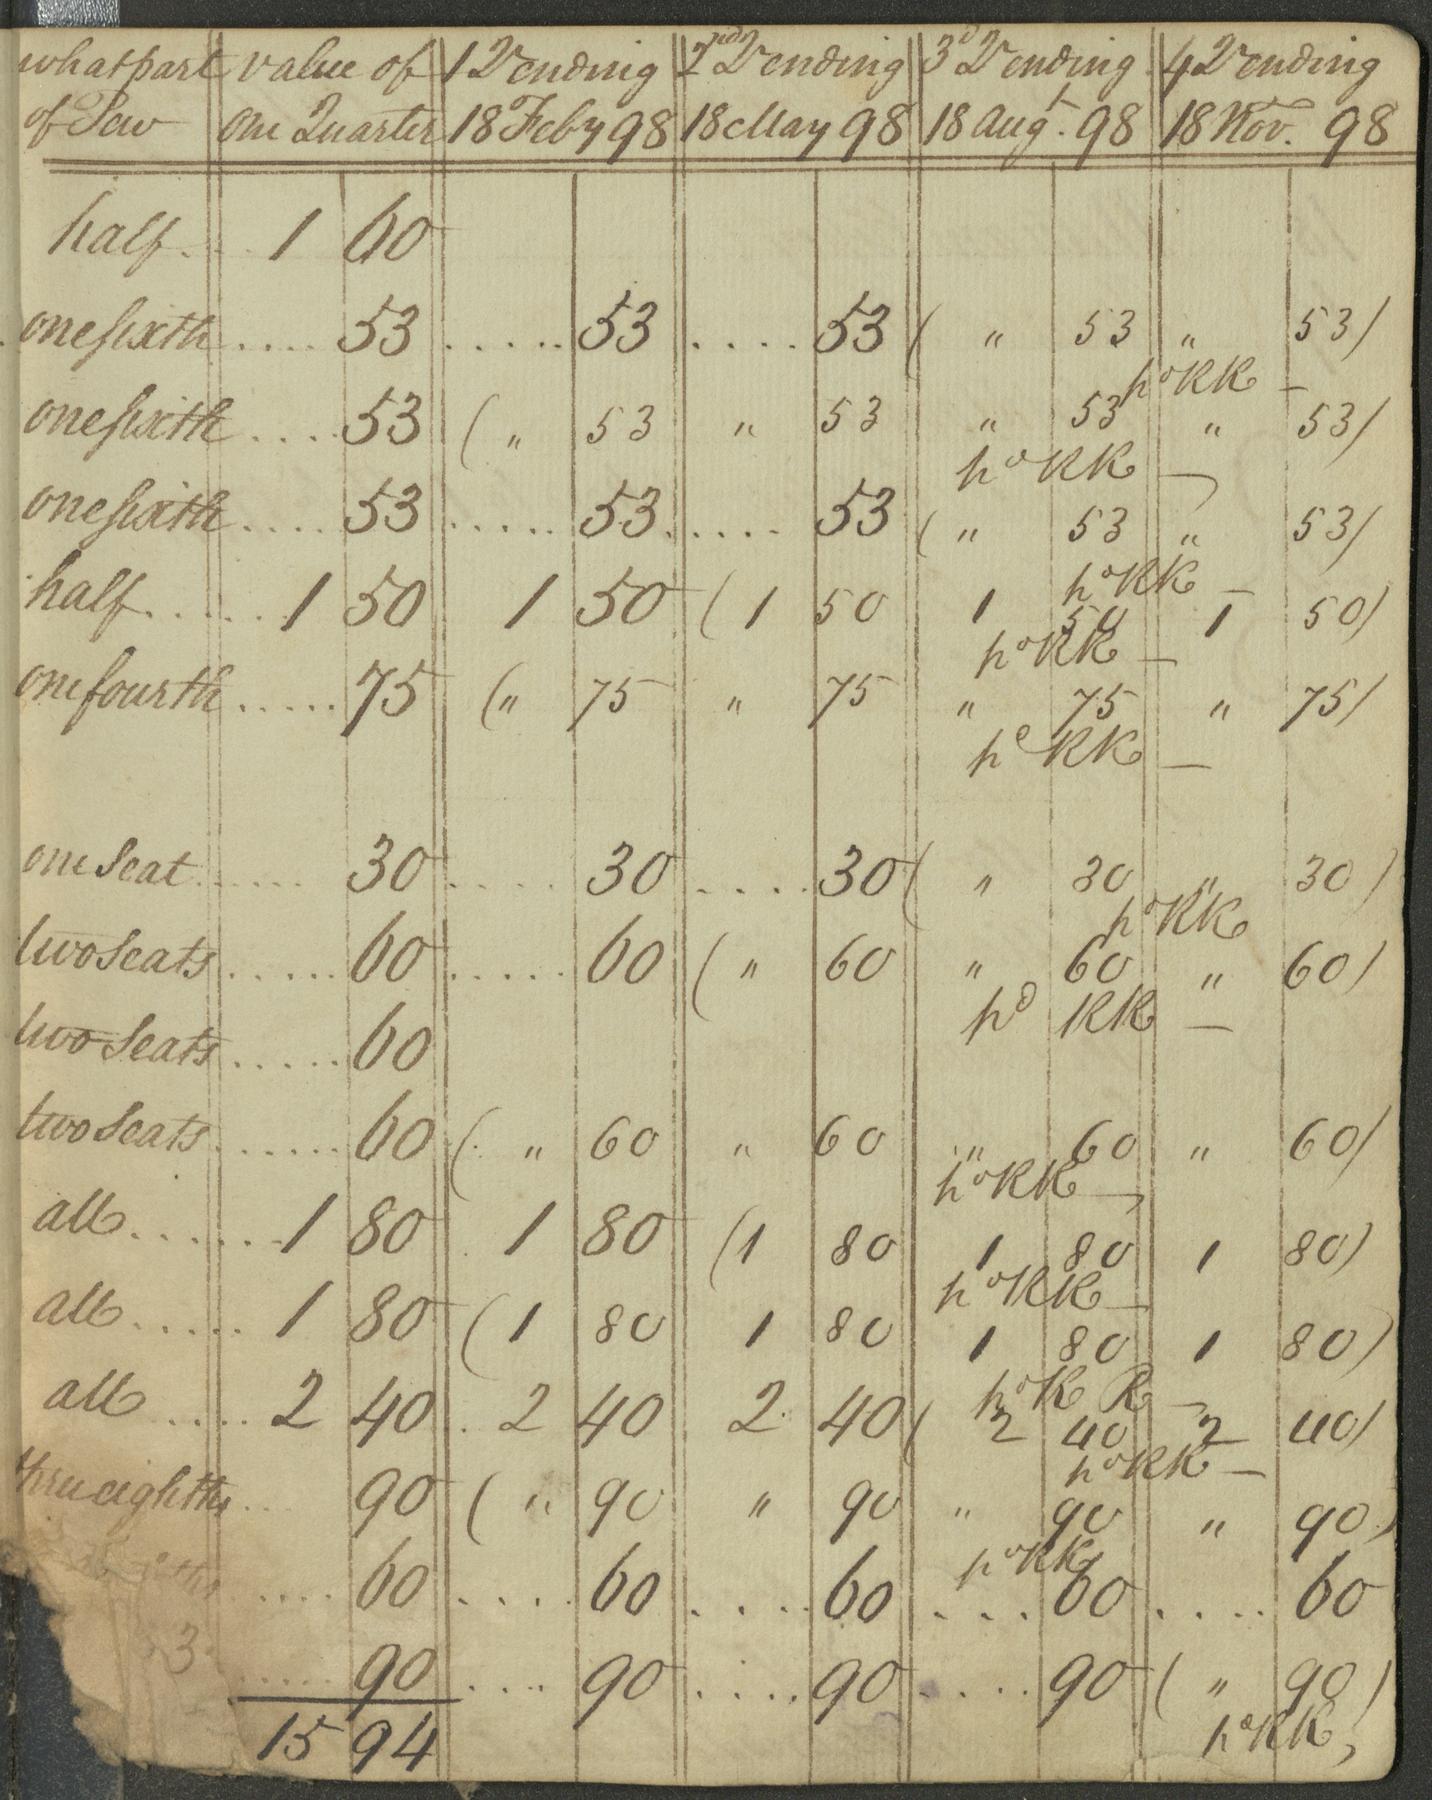 what part value of 1 Qr ending 2nd Qr ending 3d Qr ending 4 Qr ending
of Pew one Quarter 18 Feby 98 18 May 98 18 Augt. 98 18 Nov. 98
half .. 1 60
one sixth .... 53 ..... 53 .... 53 ( " 53 " 53)
pd KK —
one sixth .... 53 ( " 53 " 53 " 53 " 53)
pd KK —
one sixth .... 53 ..... 53 ..... 53 ( " 53 " 53)
pd KK —
half ..... 1 50 1 50 ( 1 50 1 50 1 50)
pd KK —
one fourth ..... 75 ( " 75 " 75 " 75 " 75)
pd KK —
one Seat ...... 30 .... 30 .... 30 ( " 30 " 30)
pd KK
two Seats ..... 60 ..... 60 ( " 60 " 60 " 60)
pd KK —
two Seats ..... 60
two Seats ...... 60 ( " 60 " 60 " 60 " 60)
pd KK —
all ...... 1 80 1 80 ( 1 80 1 80 1 80)
pd KK —
all ..... 1 80 ( 1 80 1 80 1 80 1 80)
pd KK —
all .... 2 40 .. 2 40 2 40 ( 2 40 2 40)
pd KK —
three eighths .. 90 ( " 90 " 90 " 90 " 90)
pd KK
.... 60 .... 60 .... 60 .... 60 .... 60
3 ..... 90 .... 90 .... 90 .... 90 ( " 90)
pd KK
15 94